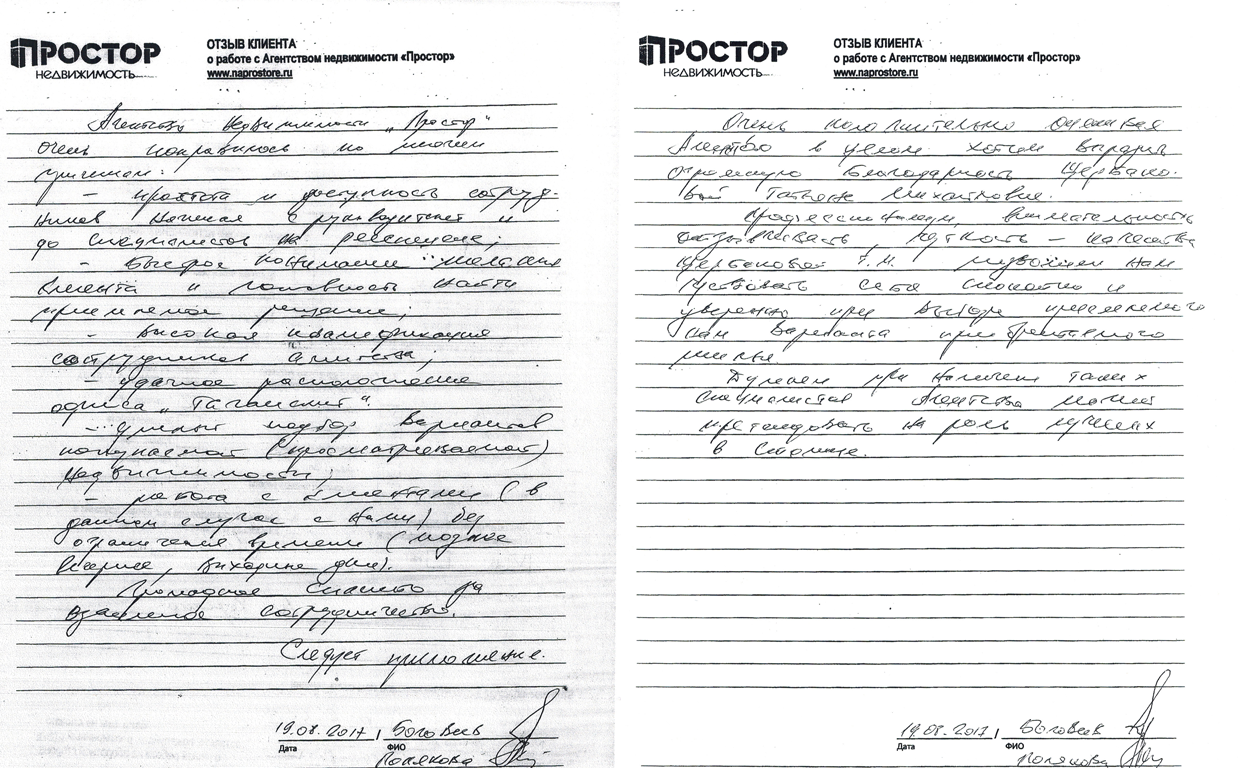 ПРОСТОР
НЕДВИЖИМОСТЬ
ОТЗЫВ КЛИЕНТА
о работе с Агентством недвижимости «Простор»
www.naprostore.ru
Агентство недвижимости „Простор"
очень понравилось по многим
причинам:
- простота и доступность сотруд-
ников начиная с руководителя и
до специалистов на ресепшене;
- быстрое понимание желания
клиента и готовность найти
приемлемое решение;
- высокая квалификация
сотрудников агентства;
- удачное расположение
офиса „Таганский".
- умелый подбор вариантов
покупаемой (просматриваемой)
недвижимости;
- работа с клиентами (в
данном случае с нами) без
ограничения времени (позднее
вечернее, выходные дни).
Громадное спасибо за
взаимное сотрудничество.
Следует приложение.
19.08.2017, Боговеев
Дата ФИО
Полякова
ПРОСТОР
НЕДВИЖИМОСТЬ
ОТЗЫВ КЛИЕНТА
о работе с Агентством недвижимости «Простор»
www.naprostore.ru
Очень положительно оценивая
Агентство в целом хотим выразить
огромную благодарность Щербако-
вой Татьяне Михайловне.
Профессионализм, внимательность
отзывчивость, чуткость – качества
Щербаковой Т.М. позволили нам
чувствовать себя спокойно и
уверенно при выборе приемлемого
нам варианта приобретаемого
жилья.
Думаем при наличии таких
специалистов Агентство может
претендовать на роль лучших
в столице.
19.08.2017, Боговеев
Дата ФИО
Полякова